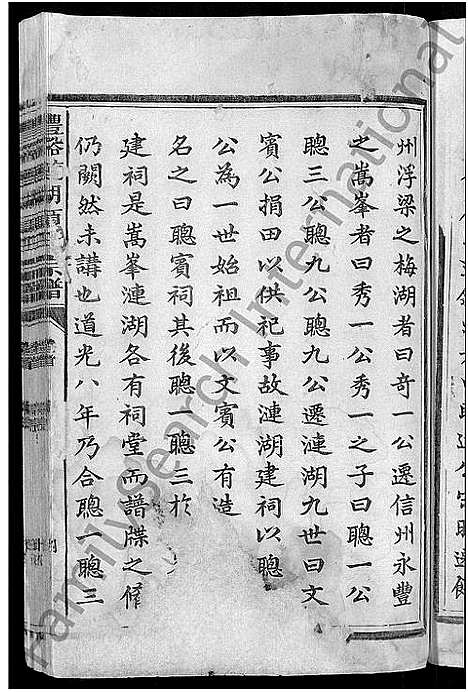 州浮梁之梅湖者曰竒一公遷信州永豐
之嵩峯者曰秀一公秀一之子曰聰一公
聰三公聰九公聰九公遷漣湖九世曰文
賓公捐田以供祀事故漣湖建祠以聰
公為一世始祖而以文賓公有造
名之曰聰賓祠其後聰一聰三於
建祠是嵩峯漣湖各有祠堂而譜牒之脩
仍闕然未講也道光八年乃合聰一聰三
豐谿
湖
宗譜
FamilySearch International